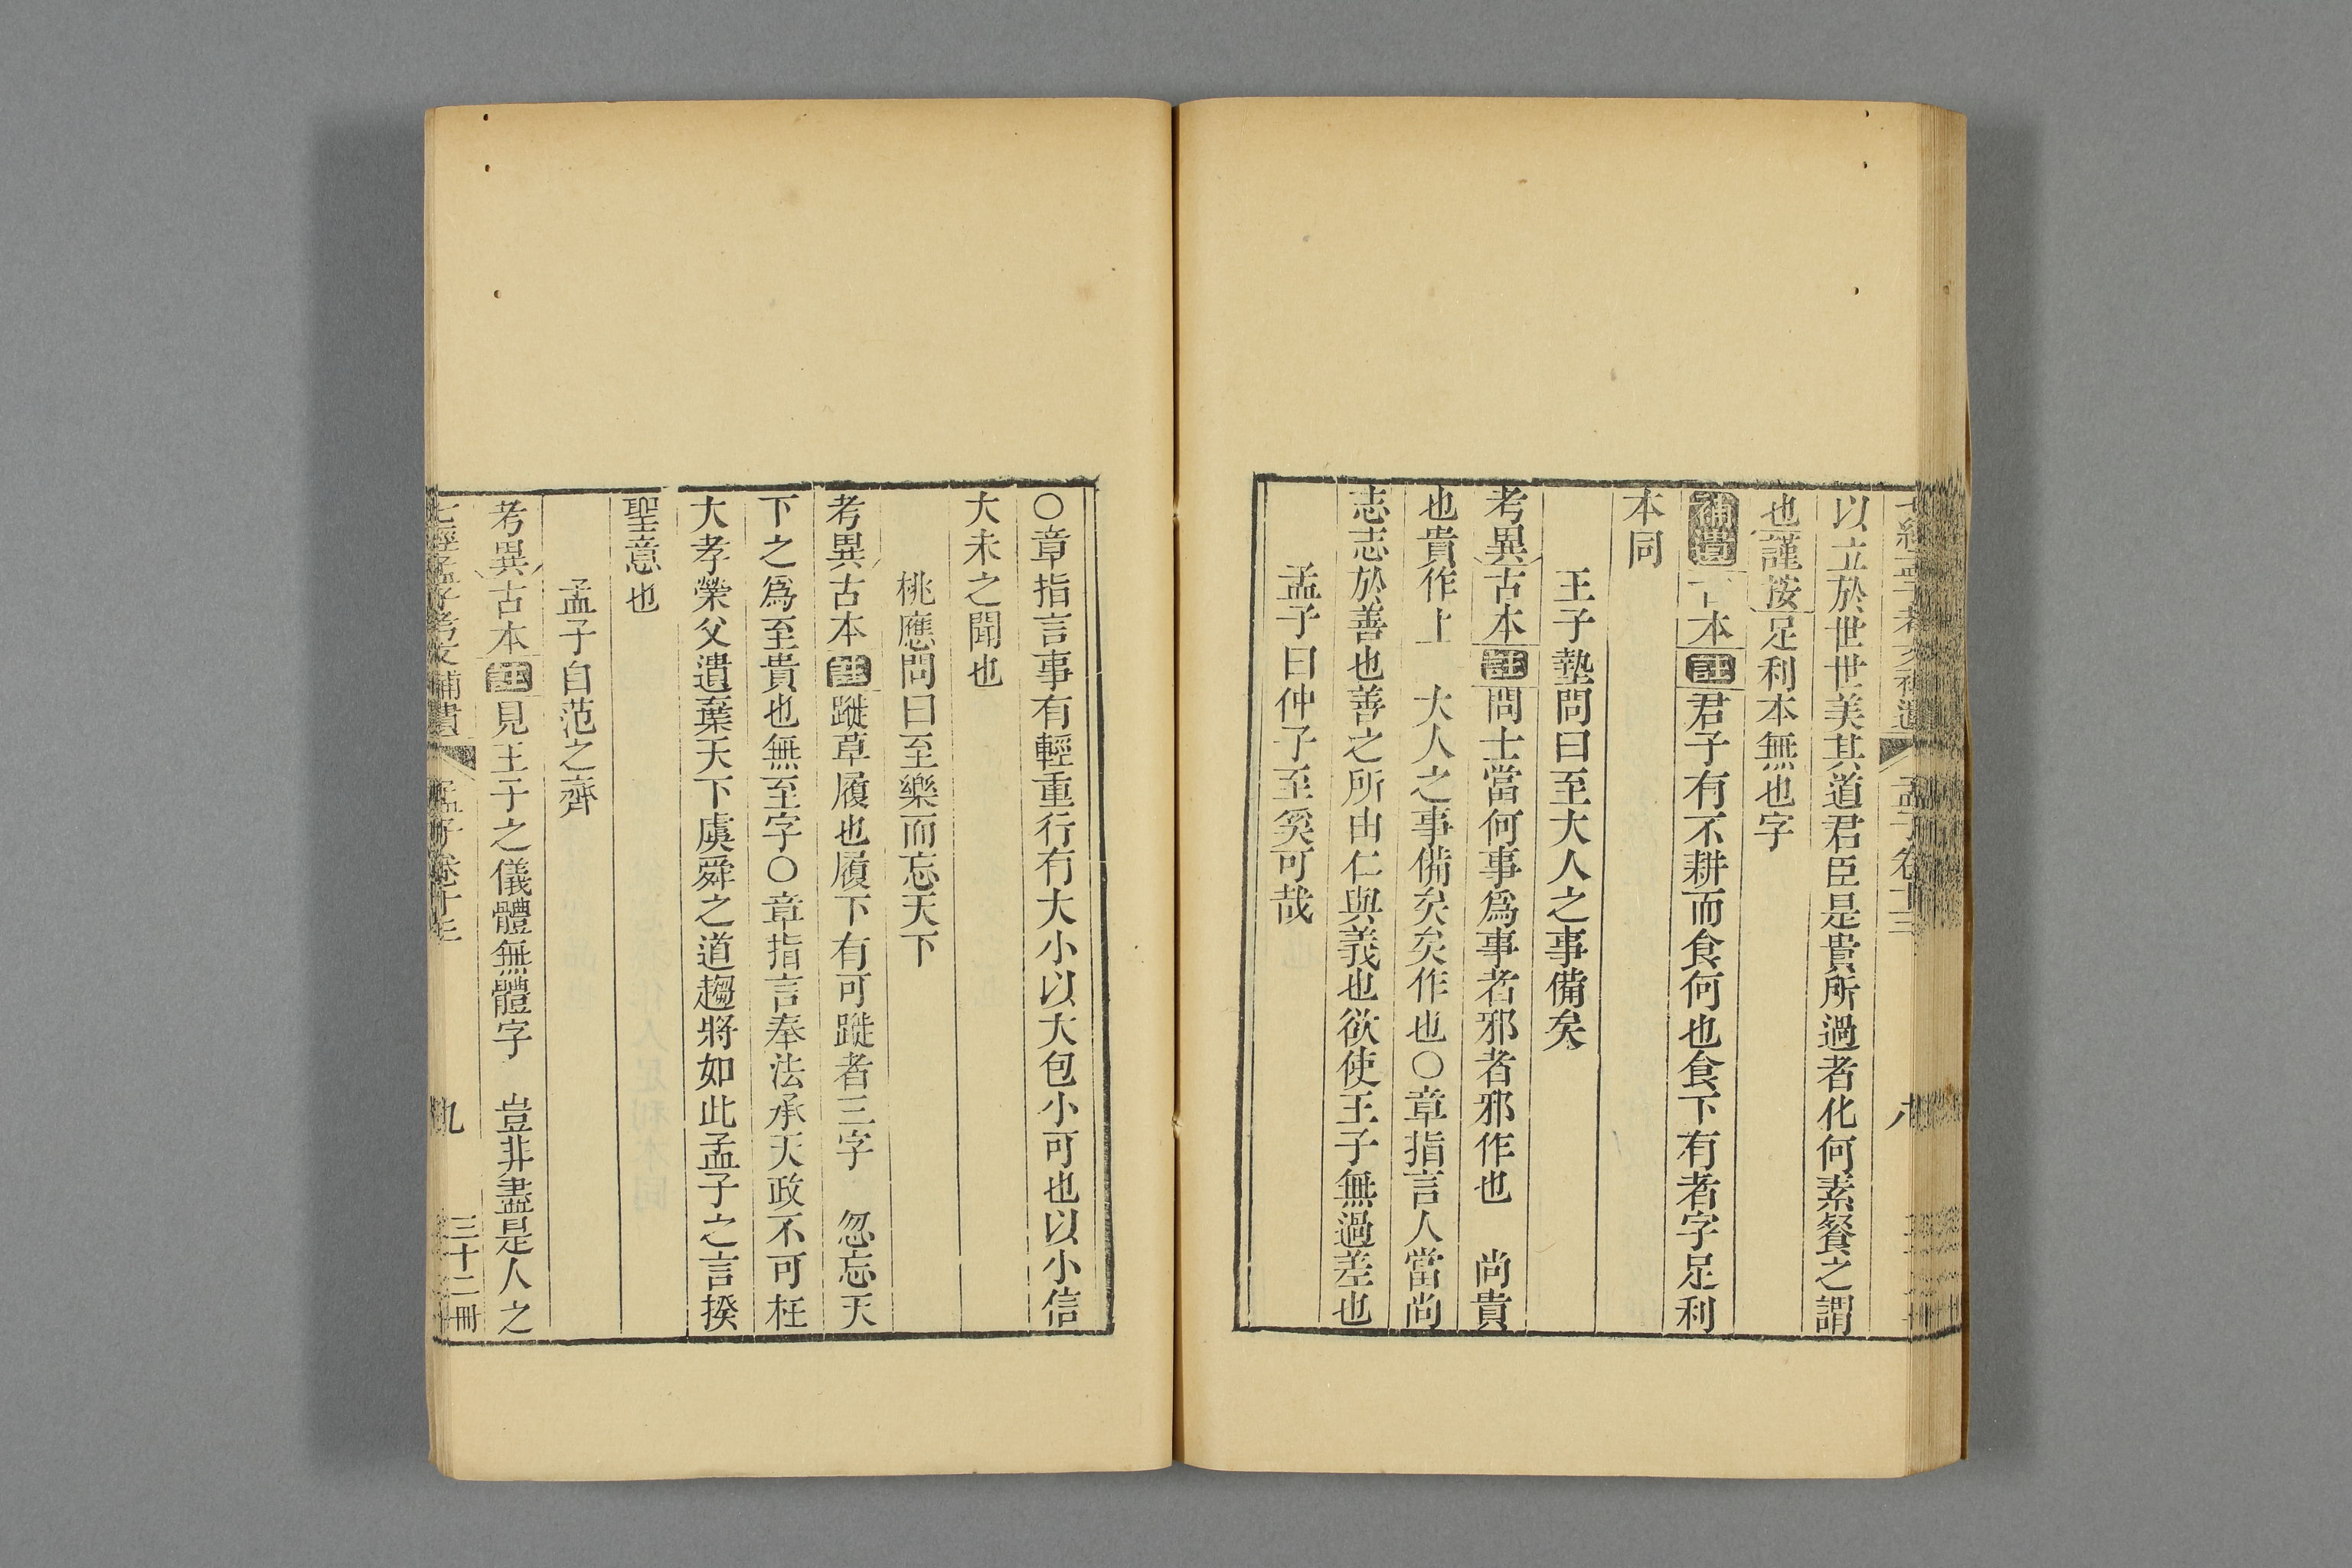 七經孟子考文補遺 孟子卷十三 八
以立於世世美其道君臣是貴所過者化何素餐之謂
也謹按足利本無也字
補遺古本註君子有不耕而食何也食下有者字足利
本同
王子墊問曰至大人之事備矣
考異古本註問士當何事爲事者邪者邪作也 尚貴
也貴作上 大人之事備矣矣作也○章指言人當尚
志志於善也善之所由仁與義也欲使王子無過差也
孟子曰仲子至奚可哉
○章指言事有輕重行有大小以大包小可也以小信
大未之聞也
桃應問曰至樂而忘天下
考異古本註蹝草履也履下有可蹝者三字 忽忘天
下之爲至貴也無至字○章指言奉法承天政不可枉
大孝榮父遺棄天下虞舜之道趨將如此孟子之言揆
聖意也
孟子自范之齊
考異古本註見王子之儀體無體字 豈非盡是人之
七經孟子考文補遺 孟子卷十三 九 三十二冊